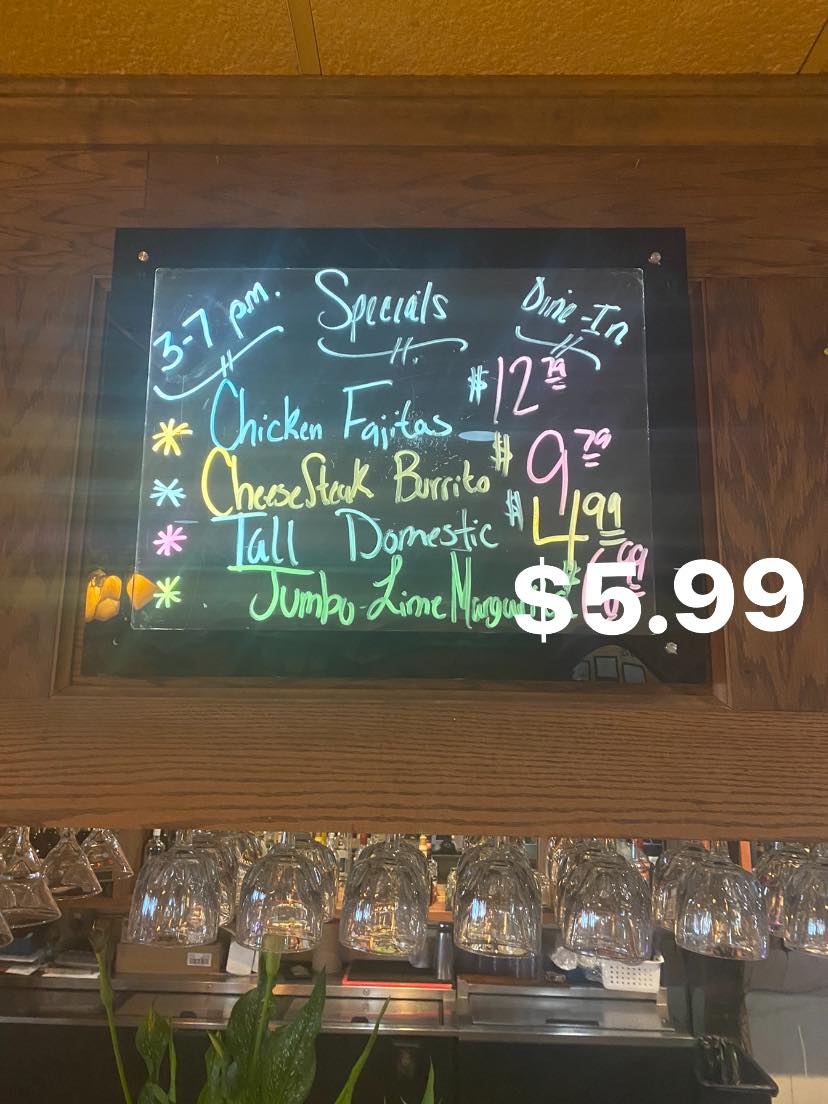 3-7 pm. Specials Dine-In
* Chicken Fajitas $12.79
* CheeseSteak Burrito $9.79
* Tall Domestic $4.99
* Jumbo Lime $5.99